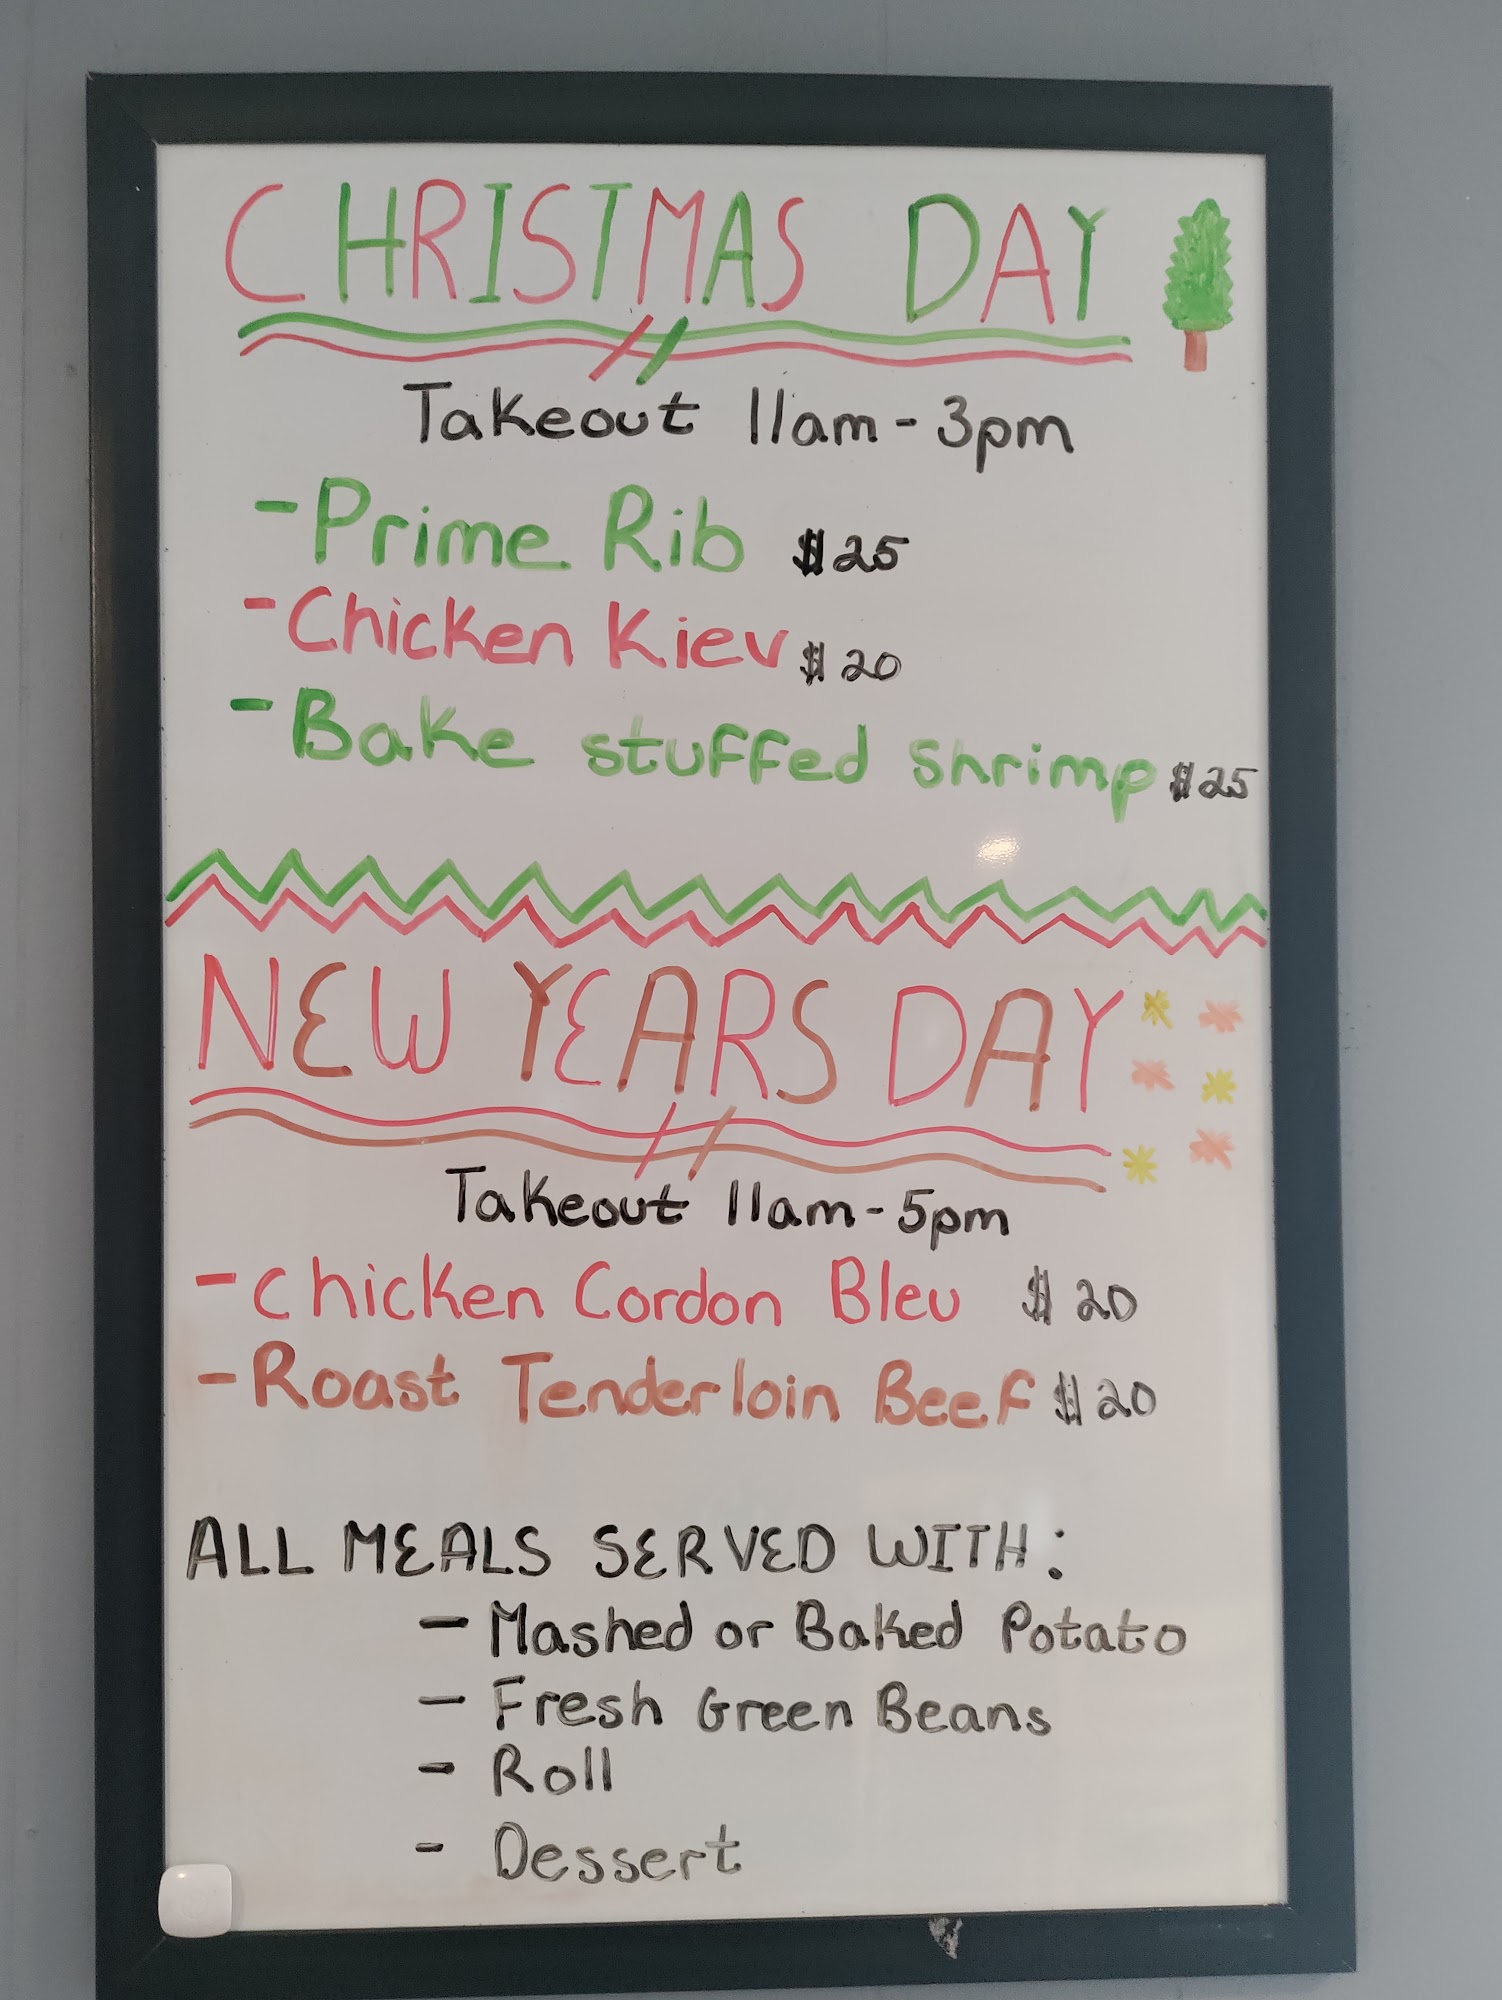 CHRISTMAS DAY
Takeout 11am - 3pm
- Prime Rib $25
- Chicken Kiev $20
- Bake stuffed shrimp $25
NEW YEARS DAY
Takeout 11am - 5pm
- Chicken Cordon Bleu $20
- Roast Tenderloin Beef $20
ALL MEALS SERVED WITH:
- Mashed or Baked Potato
- Fresh Green Beans
- Roll
- Dessert